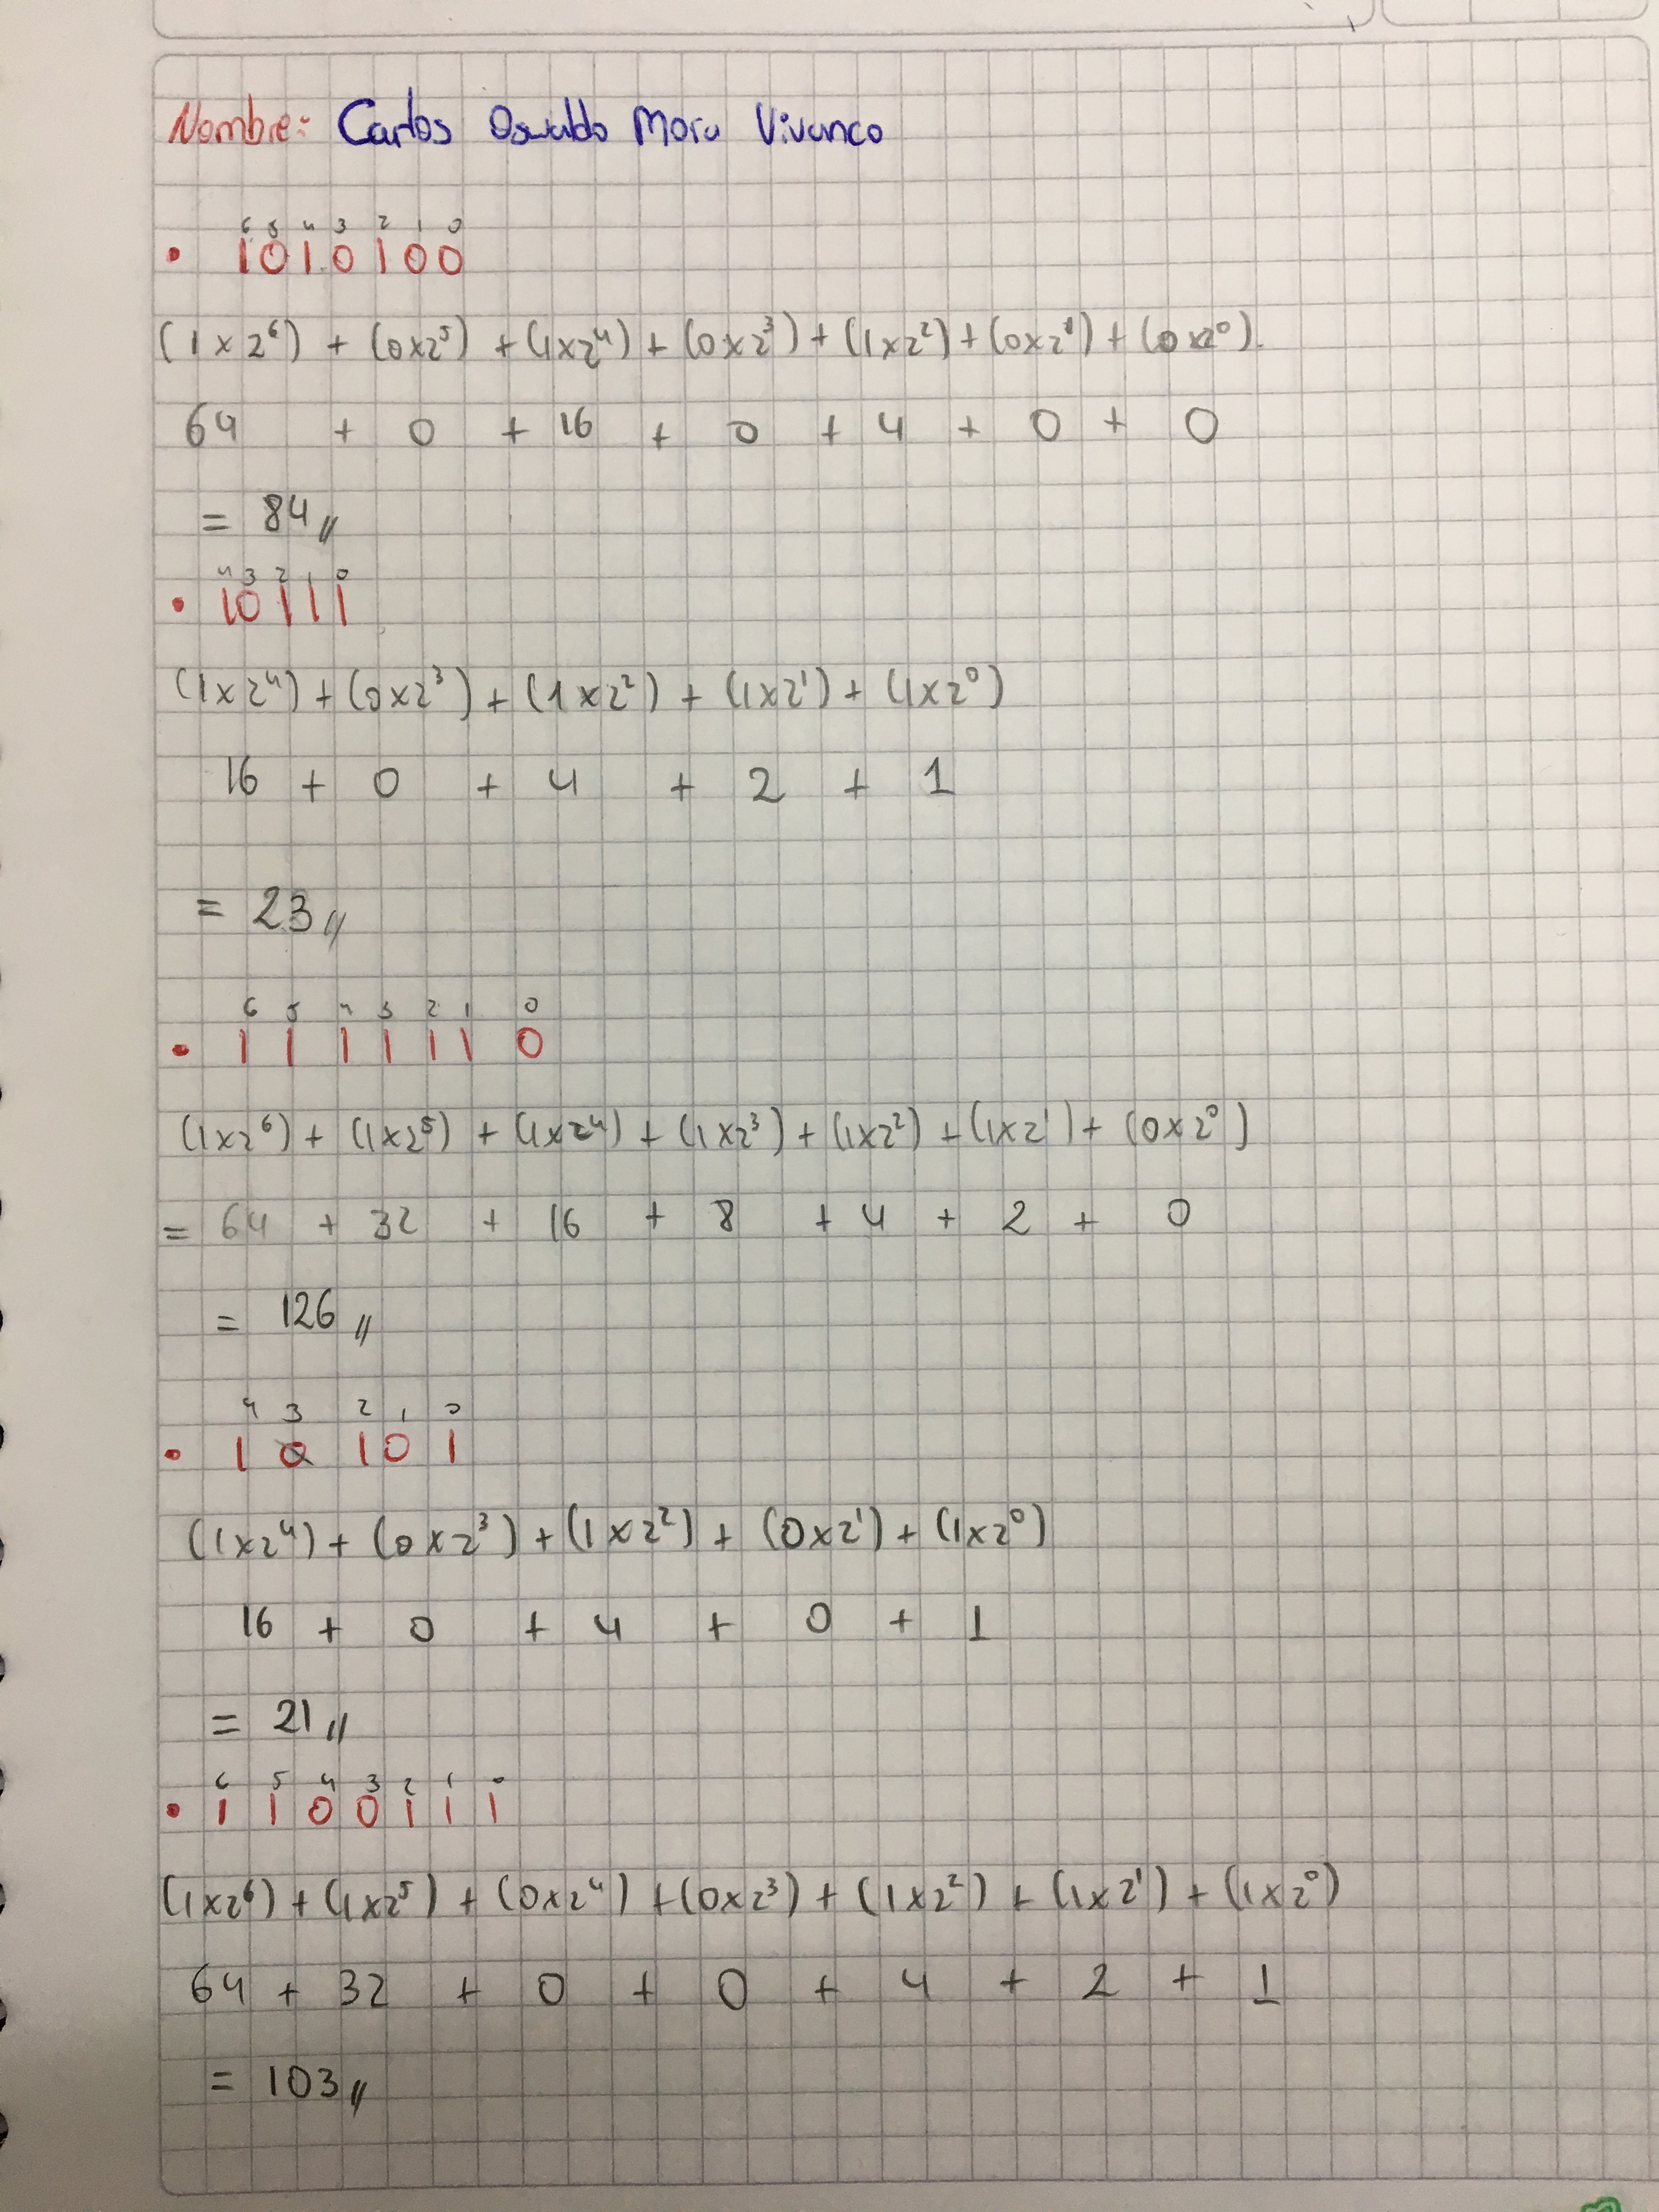 Nombre: Carlos Oswaldo Mora Vivanco
6 5 4 3 2 1 0
• 1010100
(1x2⁶) + (0x2⁵) + (1x2⁴) + (0x2³) + (1x2²) + (0x2¹) + (0x2⁰).
64 + 0 + 16 + 0 + 4 + 0 + 0
= 84 //
4 3 2 1 0
• 10111
(1x2⁴) + (0x2³) + (1x2²) + (1x2¹) + (1x2⁰)
16 + 0 + 4 + 2 + 1
= 23 //
6 5 4 3 2 1 0
• 1 1 1 1 1 1 0
(1x2⁶) + (1x2⁵) + (1x2⁴) + (1x2³) + (1x2²) + (1x2¹) + (0x2⁰)
= 64 + 32 + 16 + 8 + 4 + 2 + 0
= 126 //
4 3 2 1 0
• 1 0 1 0 1
(1x2⁴) + (0x2³) + (1x2²) + (0x2¹) + (1x2⁰)
16 + 0 + 4 + 0 + 1
= 21 //
6 5 4 3 2 1 0
• 1 1 0 0 1 1 1
(1x2⁶) + (1x2⁵) + (0x2⁴) + (0x2³) + (1x2²) + (1x2¹) + (1x2⁰)
64 + 32 + 0 + 0 + 4 + 2 + 1
= 103 //